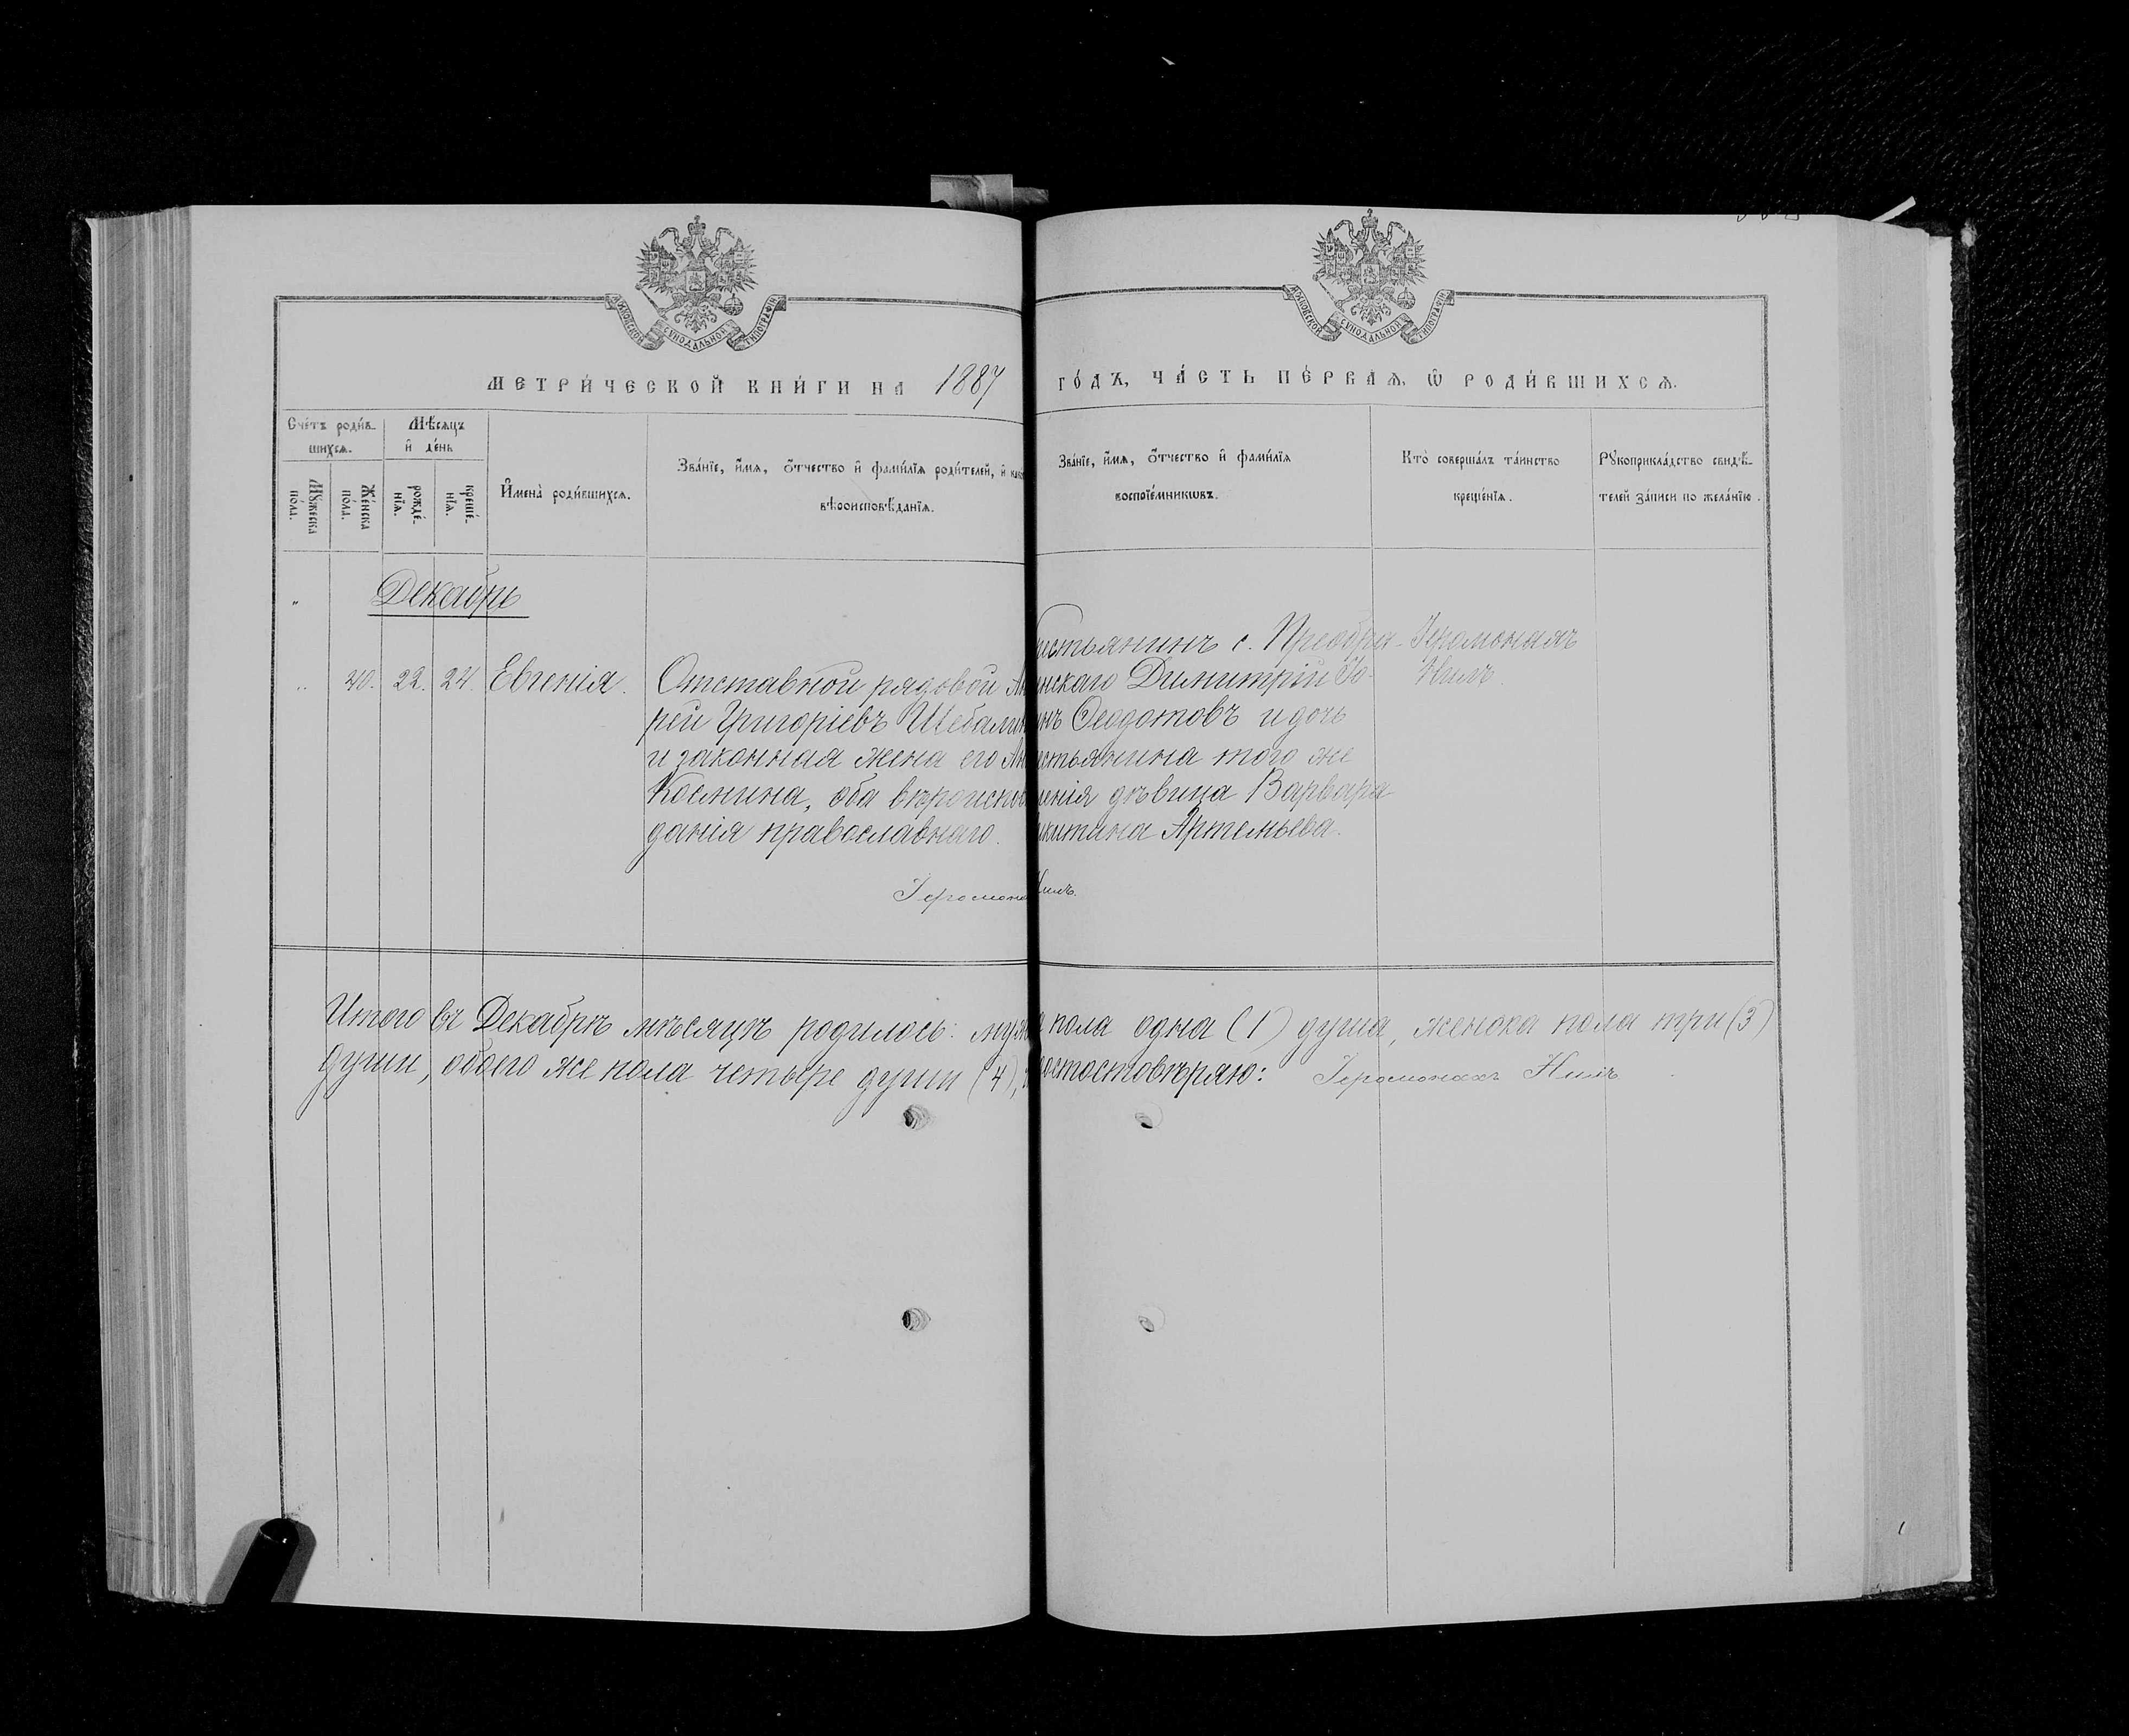 МОСКОВСКОЙ СѴНОДАЛЬНОЙ ТИПОГРАФІИ
МОСКОВСКОЙ СѴНОДАЛЬНОЙ ТИПОГРАФІИ
МЕТРИ́ЧЕСКОЙ КНИ́ГИ НА 1887 ГО́ДЪ, ЧА́СТЬ ПЕ́РВАЯ, Ѡ РОДИ́ВШИХСЯ.
Сче́тъ роди́в-
шихся.
Мꙋ́жеска
по́ла.
Же́нска
по́ла.
Мѣ́сяцъ
и҆ де́нь
рожде́-
нїя.
креще́-
нїя.
И҆мена̀ роди́вшихся.
Зва́нїе, и҆́мя, ѻ҆́тчество и҆ фами́лїя роди́телей, и҆
вѣроисповѣ́данїя.
Зва́нїе, и҆́мя, ѻ҆́тчество и҆ фами́лїя
воспрїе́мникѡвъ.
Кто̀ соверша́лъ та́инство
креще́нїя.
Рꙋкоприкла́дство свидѣ́-
телей за́писи по жела́нїю.
Декабрь
40. 22. 24. Евгенія.
Отставной рядовой
рей Григоріевъ
и законная жена его
Космина, оба вѣроиспов
данія православнаго.
Іеромона
естьянинъ с. Преобра-
нскаго Димитрій Іо-
нъ Ѳеодотовъ и дочь
естьянина того же
енія дѣвица Варвара
икитина Артемьева.
Нилъ.
Іеромонахъ
Нилъ.
Итого въ Декабрѣ мѣсяцѣ родилось: муж пола одна (1) душа, женска пола три (3)
души, обоего же пола четыре души (4), остостовѣряю: Іеромонахъ Нилъ